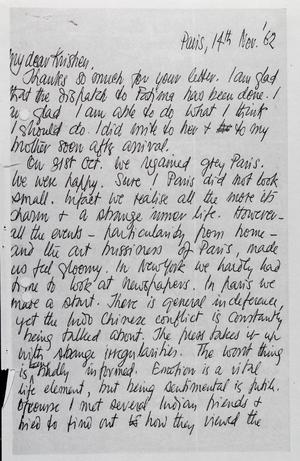 Paris, 14th Nov. '62
My dear Krishen,
Thanks so much for your letter. I am glad
that the dispatch to Fatima has been done. I
am glad I am able to do what I think
I should do. I did write to her & to my
brother soon after arrival.
On 31st Oct. we regained grey Paris.
We were happy. Sure! Paris did not look
small. Infact we realise all the more its
charm & a strange inner life. However-
all the events - particularly from home -
and the art bussiness of Paris, made
us feel gloomy. In New York we hardly had
time to look at newspapers. In paris we
made a start. There is general indeference,
yet the Indo Chinese conflict is constantly
being talked about. The press takes it up
with strange irregularities. The worst thing
is being badly informed. Emotion is a vital
life element, but being sentimental is futile.
Ofcourse I met several Indian friends &
tried to find out how they viewed the